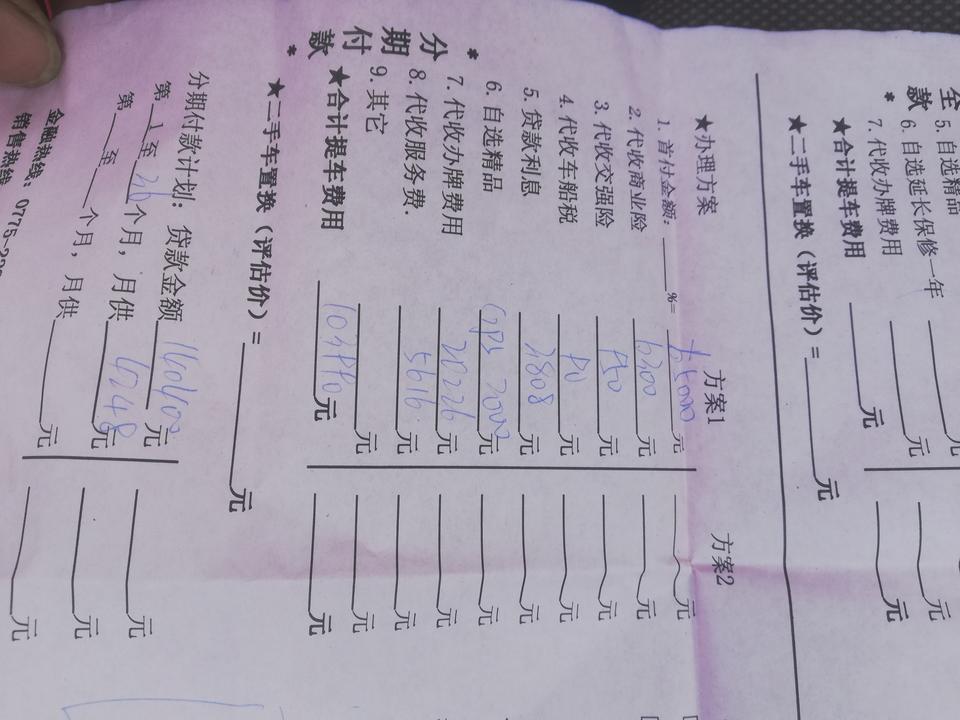 全款
*
5. 自选精品
6. 自选延长保修一年
7. 代收办牌费用
★合计提车费用 元 元
★二手车置换（评估价）= 元
*分期付款*
★办理方案 方案1 方案2
1. 首付金额： %= 元 元
2. 代收商业险 6300 元 元
3. 代收交强险 950 元 元
4. 代收车船税 元 元
5. 贷款利息 2808 元 元
6. 自选精品 GPS 2000 元 元
7. 代收办牌费用 20226 元 元
8. 代收服务费. 5616 元 元
9. 其它 元 元
★合计提车费用 元 元
★二手车置换（评估价）= 元
分期付款计划：贷款金额 元 元
第 1 至 个月，月供 6248 元 元
第 至 个月，月供 元 元
金融热线：0775-
销售热线